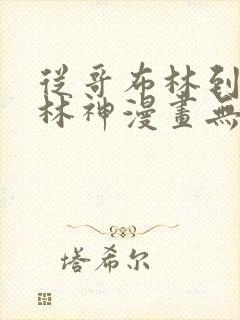 從哥布林到
林神漫畫無
塔希尔